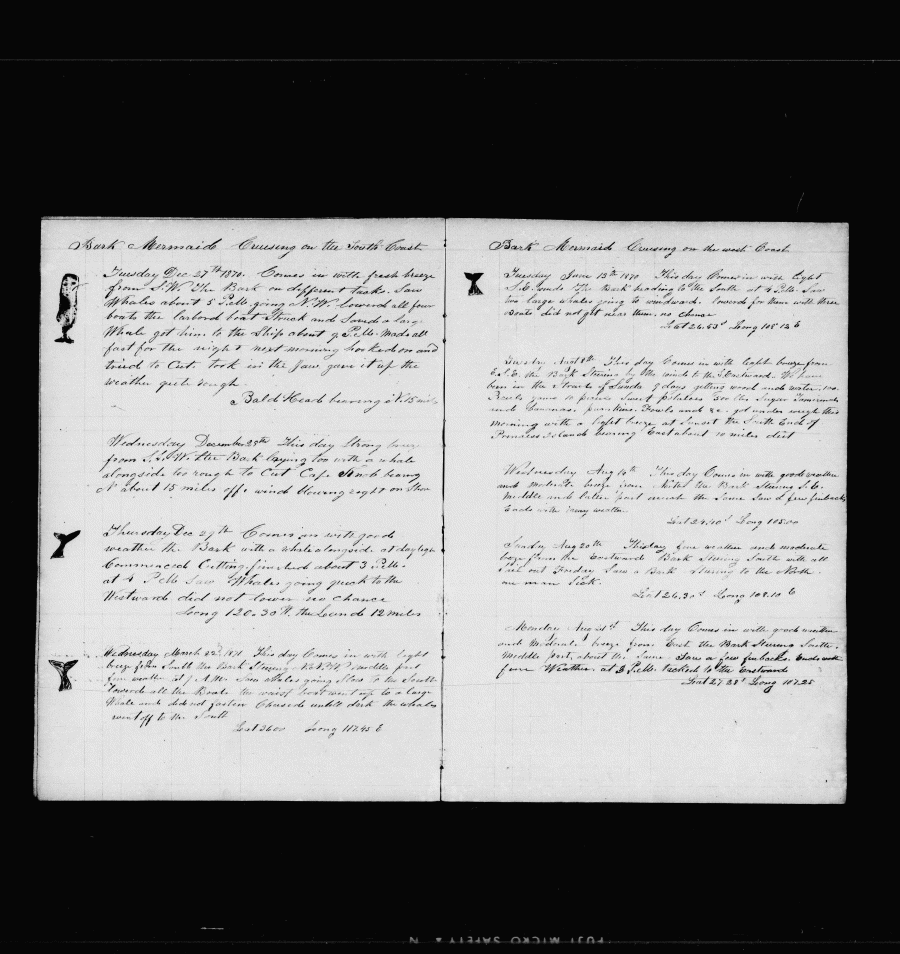 Bark Mermaid Cruising on the South Coast
Tuesday Dec 27th 1870. Comes in with fresh breeze
from S.W. the Bark on different tacks. Saw
Whales about 5 P.M. going N.W. lowerd all four
boats the larbord boat Struck and Saved a large
Whale got him to the Ship about 9 P.M. Made all
fast for the night next morning hooked on and
tried to Cut. took in the Jaw gave it up the
weather quite rough
Bald Head bearing N. 15 miles
Wednesday December 28th This day Strong breeze
from S.S.W. the Bark laying too with a whale
alongside too rough to Cut Cape bearing
N about 15 miles off wind blowing right on Shore
Thursday Dec 29th Comes in with good
weather the Bark with a whale alongside at daylight
Commenced Cutting finished about 3 P.M.
at 4 P.M. Saw Whales going quick to the
Westward did not lower no chance
Long 120.30 the Land 12 miles
Wednesday March 22d 1871 This day Comes in with light
breeze from South the Bark Stering N.N.W. Middle part
fine weather at A.M. Saw whales going Slow to the South
lowerd all the Boats the waist boat went up to a large
Whale and did not fasten Chased untill dark the whales
went off to the South
Lat 36 00 Long 117.45 E
Bark Mermaid Cruising on the west Coast
Tuesday June 13th 1870 This day Comes in with light
S.E. winds the Bark heading to the South at 4 P.M. Saw
two large whales going to windward. lowerd for them with three
Boats did not get near them. no chance
Long 108 12 E
Augt 8th This day Comes in with light breeze from
E.S.E. the Bark Stering by the wind to the S. Eastward. We have
ben in the Straits of Sunda 9 days getting wood and water.
Sweet potatoes Sugar
and Bananas Fowls and &c. got under weigh this
morning with a light breeze at Sunset the South End of
Princess Island bearing East about 10 miles dist
Wednesday Aug Comes in with good weather
and moderate breeze from the Bark Stering S.E.
Middle and latter part much the Same Saw a few finbacks
Ends with weather.
Lat 24.40 Long 105.00
Sunday Aug 20th This day fine weather and moderate
breeze from the Eastward Bark Stering South with all
Sail out Friday Saw a Bark Stering to the North
one man Sick.
Lat 26.30 Long 108.10 E
Monday Aug 21st This day Comes in with good weather
and Moderate breeze from East the Bark Stering South.
Middle part, about the Same Saw a few finbacks. Ends with
fine Weather at 3 P.M. tacked to the Eastward
Lat 27.28 Long 107.25
FUJI MICRO SAFETY N